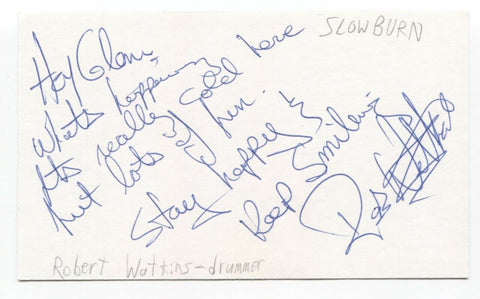 SLOWBURN
Hey Glenn
Whats happening
its really cold here
but lots of fun.
Stay happy &
Keep Smiling
Rob
Robert Watkins-drummer